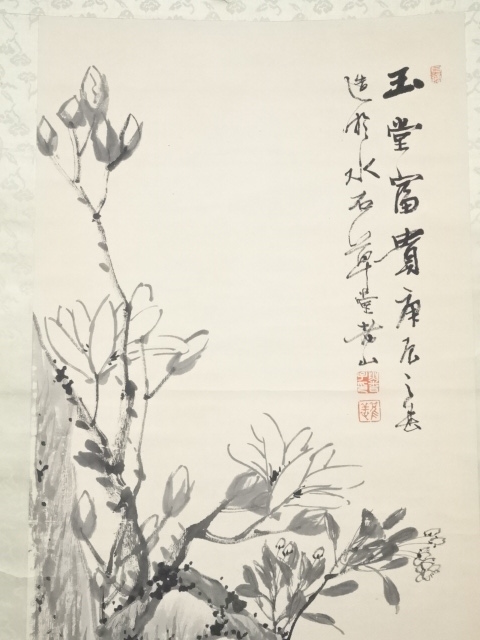 玉堂富貴庚辰之春
造於水石草堂黃山